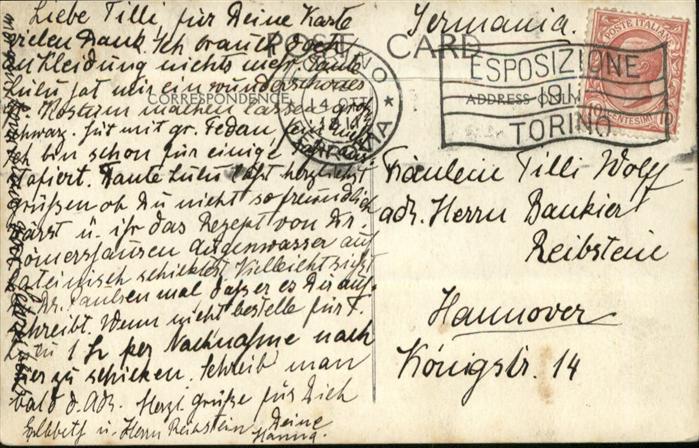 Liebe Tilli, für Deine Karte
vielen Dank. Ich brauche doch
an Kleidung nichts mehr. Tante
Lulu hat mir ein wunderschönes
Kostüm machen lassen,
schwarz. Hut mit gr. Federn,
ich bin schon für einige
Tante Lulu läßt herzlichst
grüßen ob Du nicht so freundlich
wärst u. ihr das Rezept von Dr.
Römershausen Augenwasser auf
lateinisch schicktest. Vielleicht
Dr. Paulsen mal daß er es Dir auf-
schreibt. Wenn nicht bestelle für T.
Lulu 1 per Nachnahme nach
hier zu schicken. Schreib man
bald d. Adr. Herzl. Grüße für Dich
Elsbeth u. Herrn Reibstein Deine
Hanna.
POST CARD
CORRESPONDENCE
ADDRESS ONLY
Germania.
ESPOSIZIONE
1911
TORINO
POSTE ITALIANE
CENTESIMI
Fräulein Tilli Wolff
adr. Herrn Bankier
Reibstein
Hannover
Königstr. 14